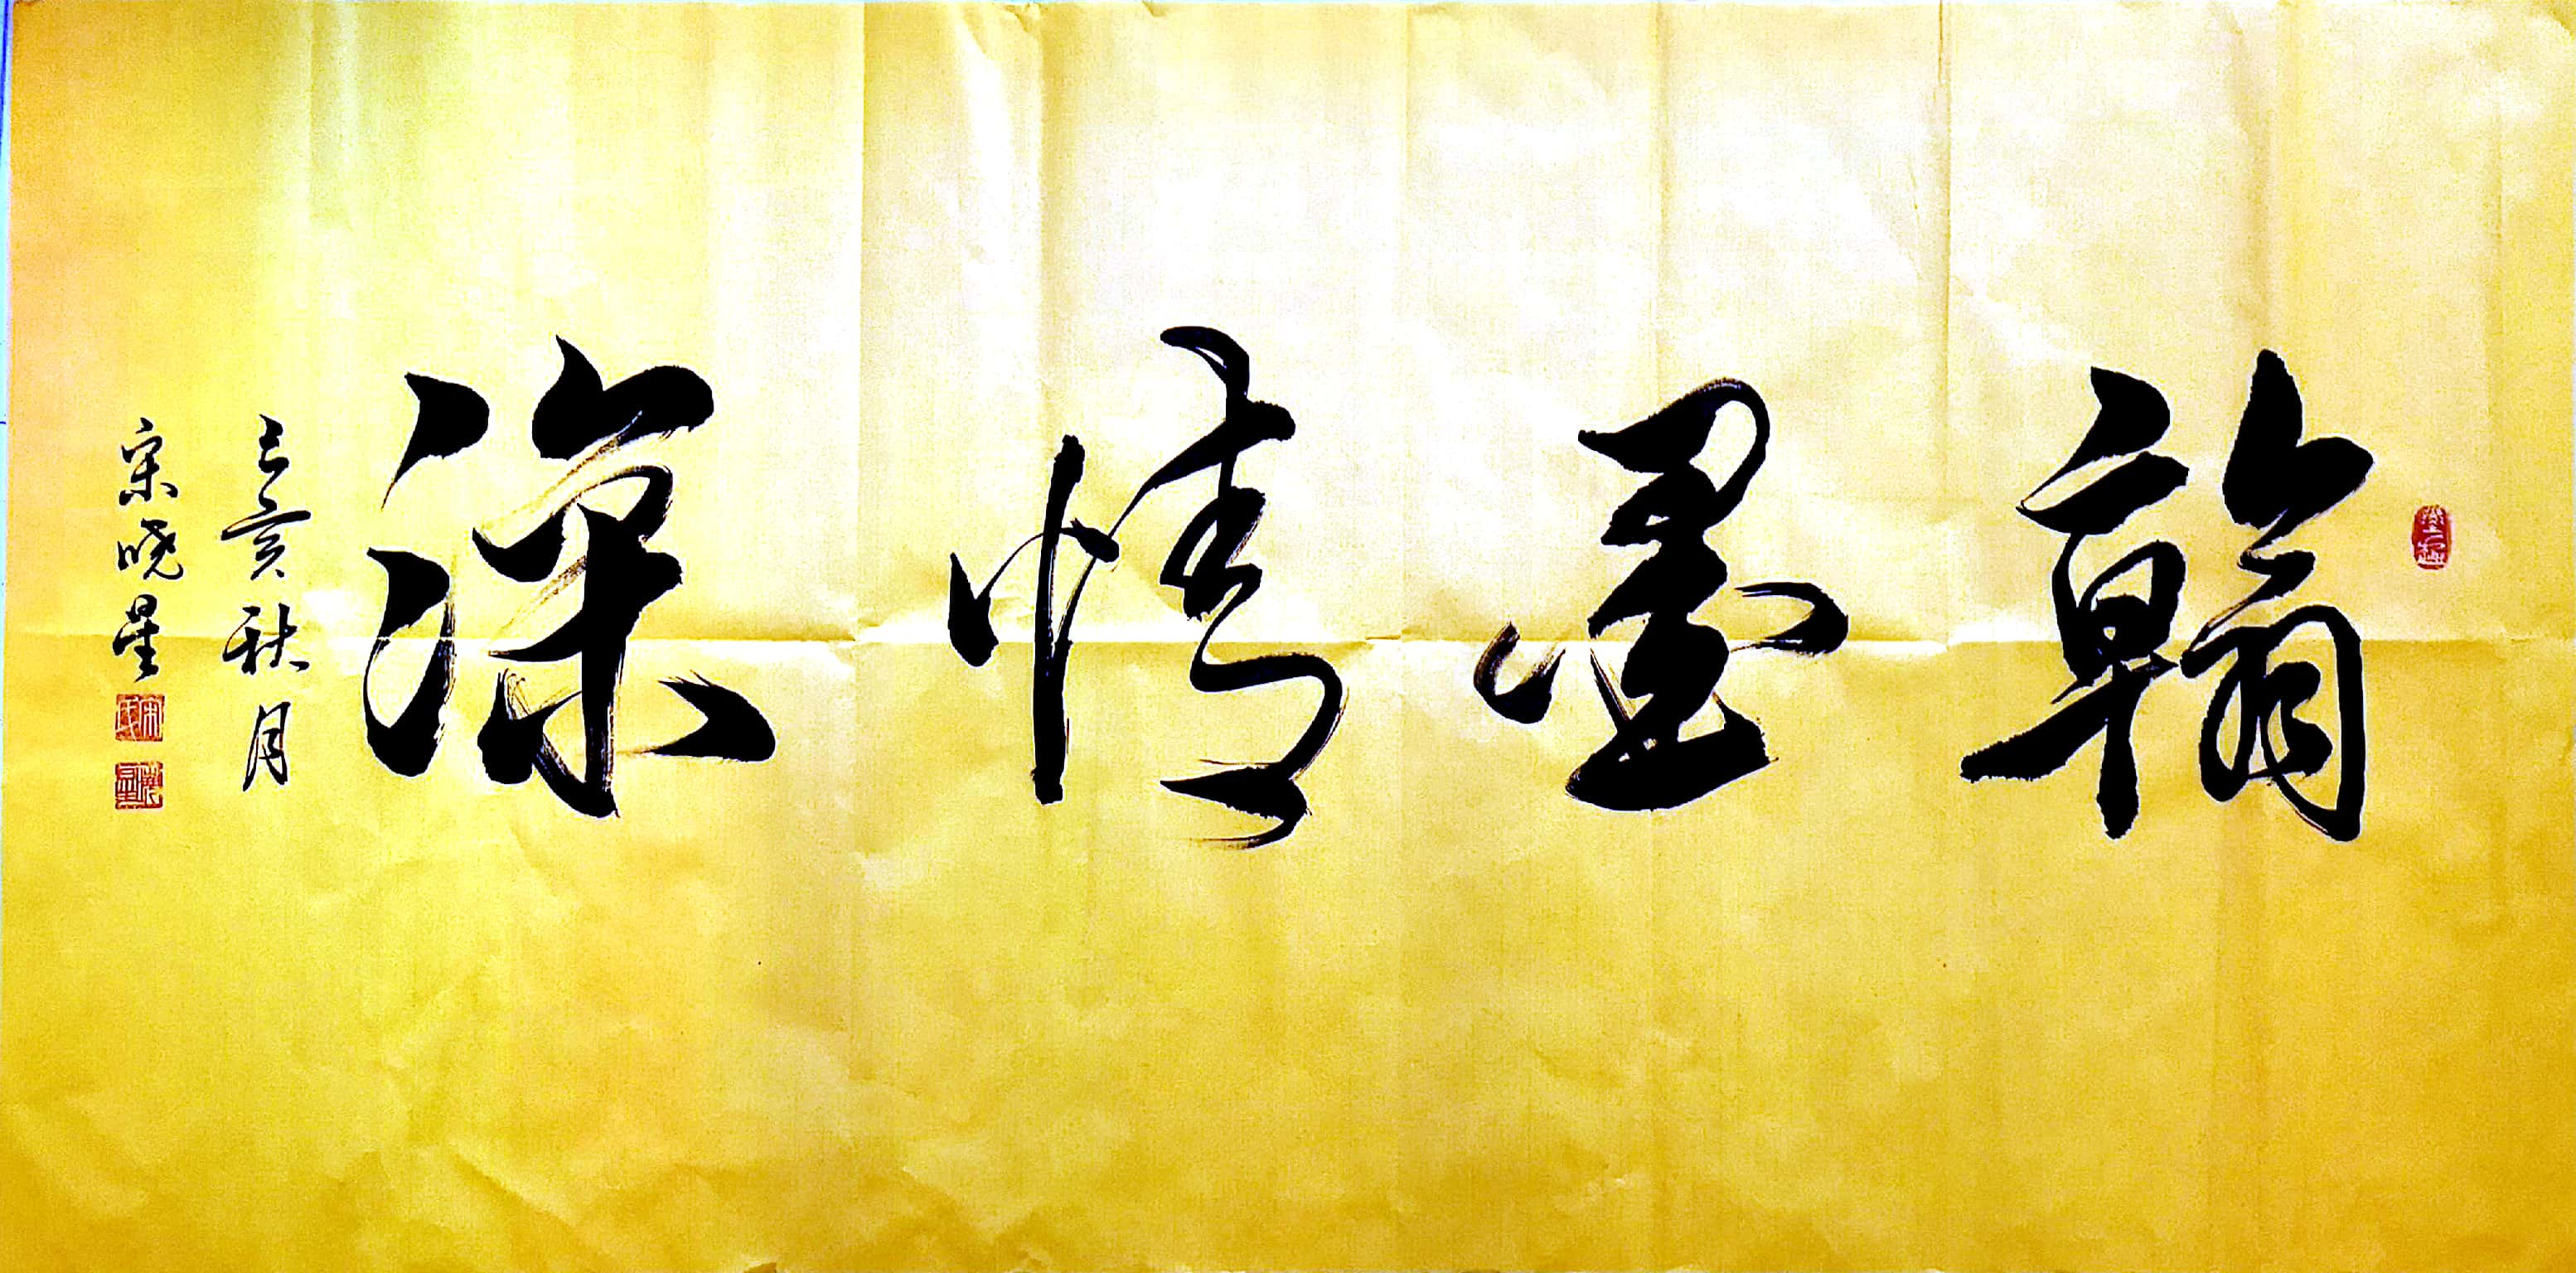 翰墨情深
己亥秋月
宋晓星